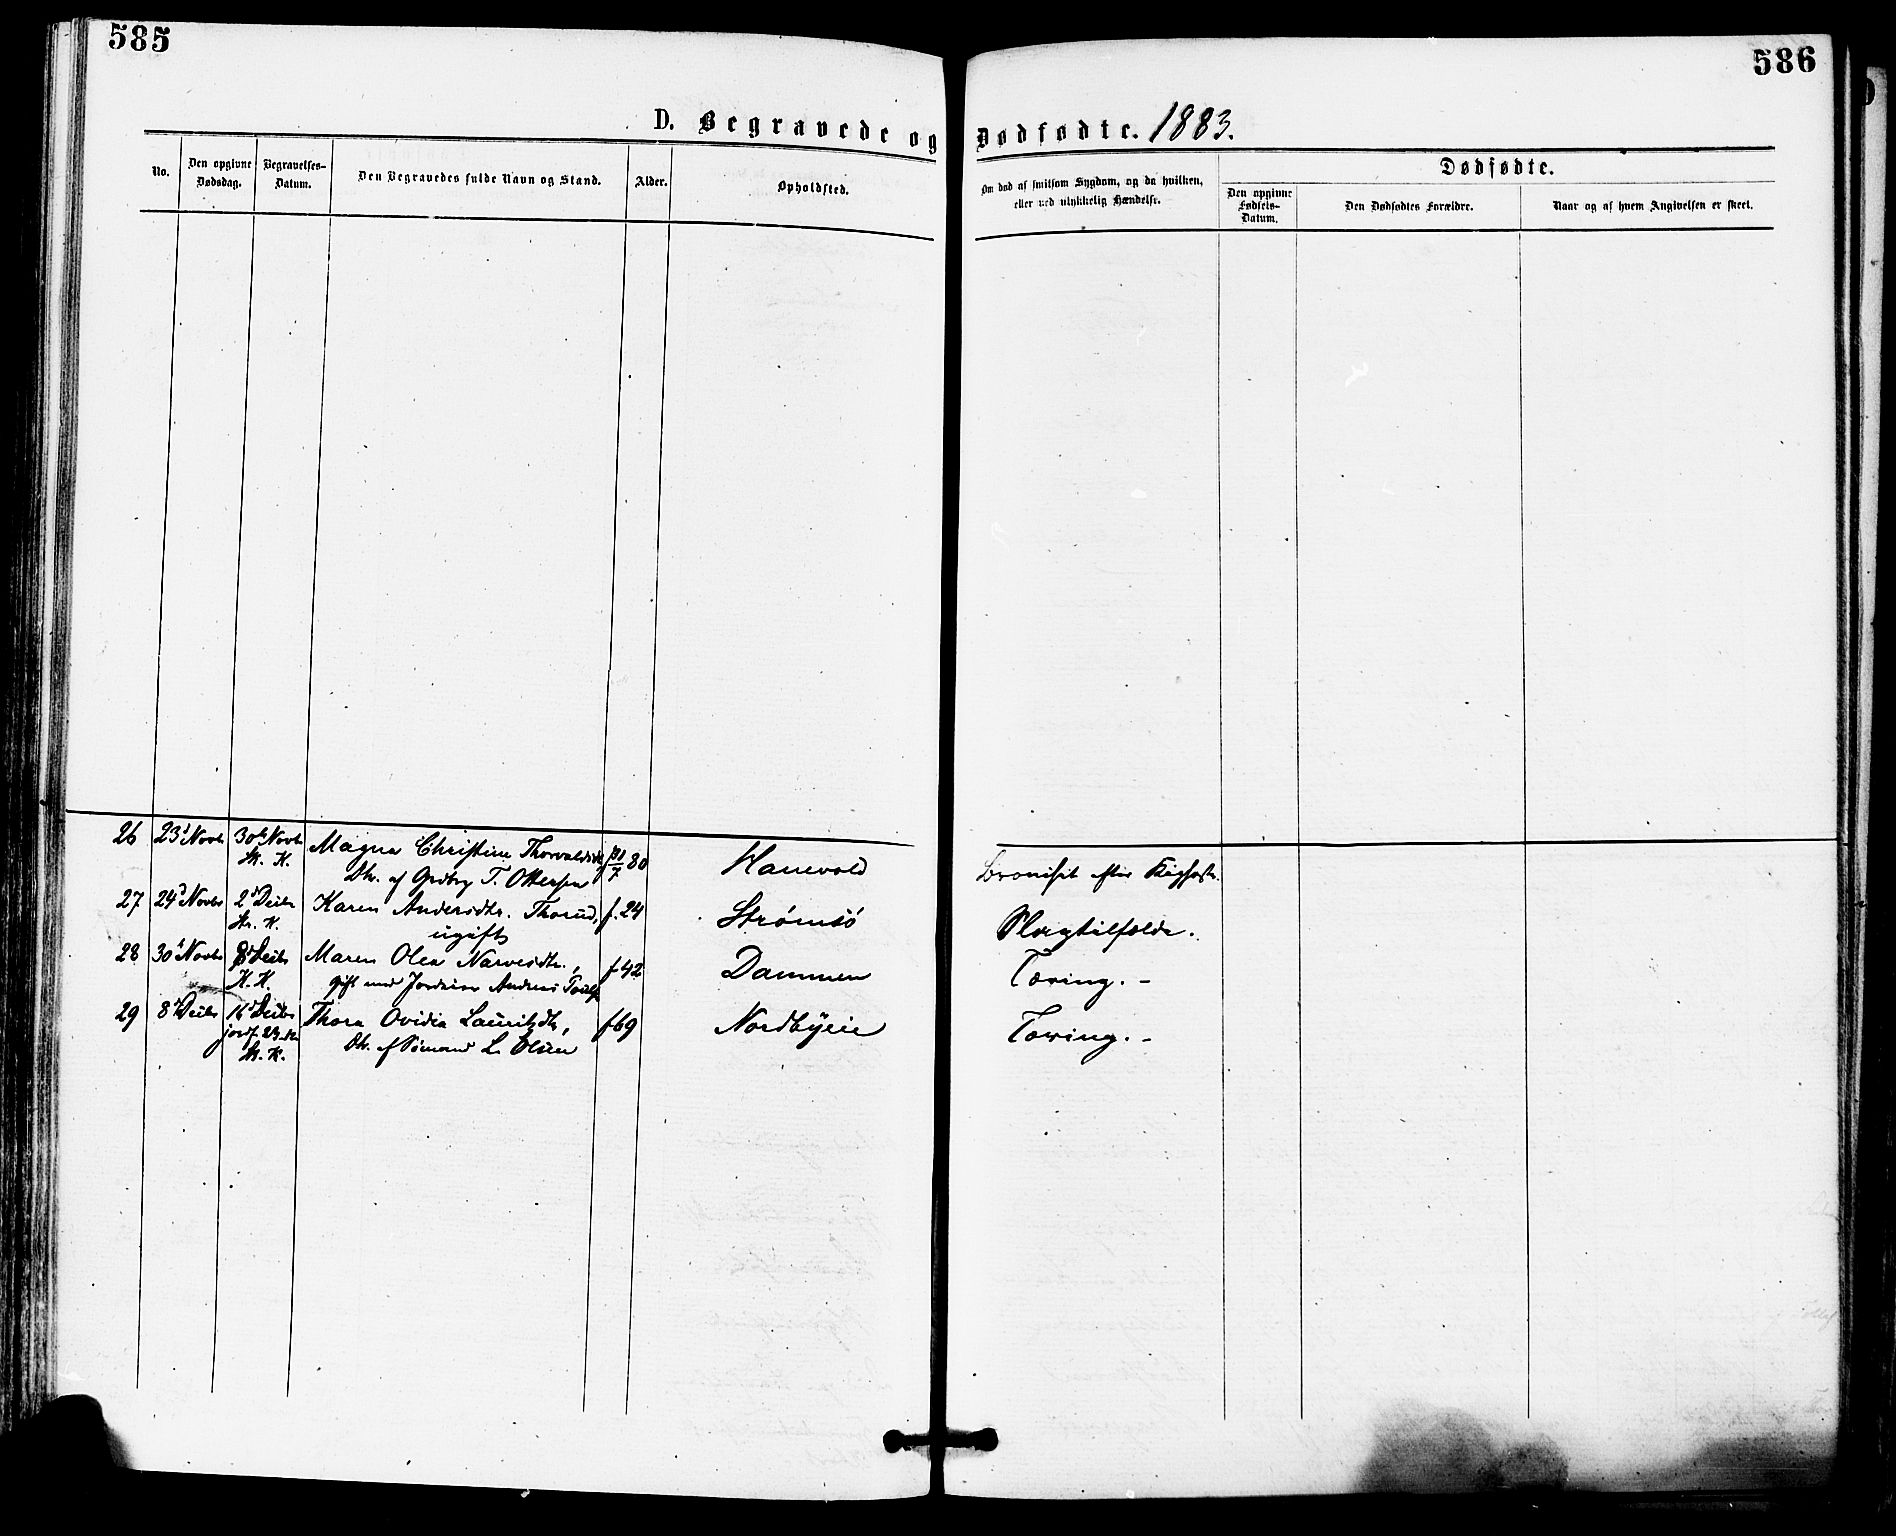 585
586
D. Begravede og Dødfødte. 1883.
No.
Den opgivne Dødsdag.
Begravelses-Datum.
Den Begravedes fulde Navn og Stand.
Alder.
Opholdsted.
Om død af smitsom Sygdom, og da hvilken, eller ved ulykkelig Hændelse.
Dødfødte.
Den opgivne Fødsels-Datum.
Den Dødfødtes Forældre.
Naar og af hvem Angivelsen er skeet.
26 23d Novbr 30te Novbr Magna Christine Thorvaldsdtr f 80 Hanevold Bronchit efter Kighoste.
St. K. Dtr. af T. Ottersen
27 24d Novbr 2d Decbr Karen Andersdtr. Thorud, f. 24 Strømsö Slagtilfælde.
Str. K. ugift
28 30d Novbr 8d Decbr Maren Olea Narvesdtr., f 42 Dammen Tæring. –
K. K. gift med Andreas
29 8d Decbr 16d Decbr Thora Ovidia Lauritzdtr, f 69 Nordbyeie Tæring. –
jordf. St. K. Dtr. af Sömand L. Olsen